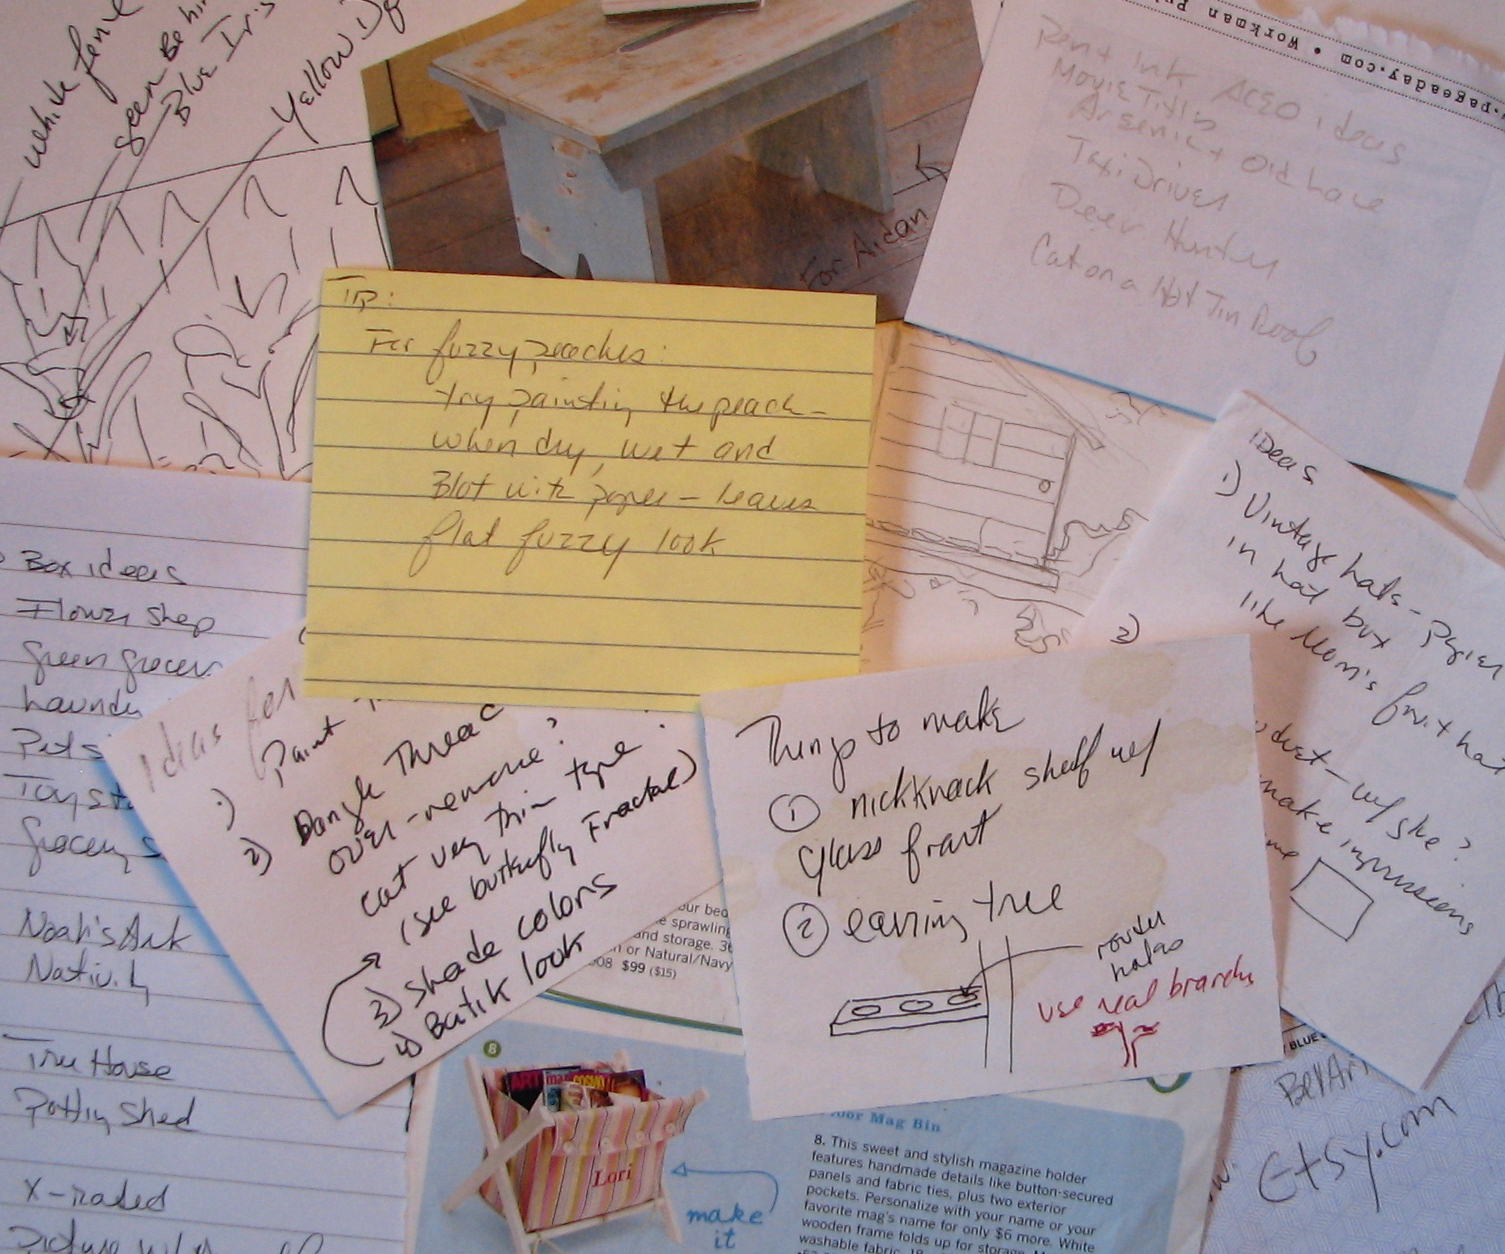 white fence
green Behin
Blue Iris
Yellow
For Aidan
pageaday.com • Workman Pu
Pen + Ink ACEO ideas
Movie Titles
Arsenic + Old Lace
Taxi Driver
Deer Hunter
Cat on a Hot Tin Roof
TIP:
For fuzzy peaches:
try painting the peach -
when dry, wet and
Blot with paper - leaves
flat fuzzy look
IDeas
1) Vintage hats - paper
in hat box
like Mom's fruit hat
2)
dust - w/ she?
make impressions
me
Box ideas
Flower shop
green grocer
Laund
Pet s
Toy st
Grocery s
Noah's Ark
Nativity
Tree House
Potting Shed
X-rated
Picture
Ideas for
1) Paint
2) Dangle Threa
over-remove?
cat very thin type
(see butterfly Fractal)
3) shade colors
4) Batik look
Things to make
① nickknack shelf w/
glass front
② earring tree
router
holes
use real branches
our bed
e sprawling
and storage. 3
n or Natural/Navy
008 $99 ($15)
8
ART
COSMO
Lori
make
it
oor Mag Bin
8. This sweet and stylish magazine holder
features handmade details like button-secured
panels and fabric ties, plus two exterior
pockets. Personalize with your name or your
favorite mag's name for only $6 more. White
wooden frame folds up for storage.
washable fabric.
BLUE
Etsy.com